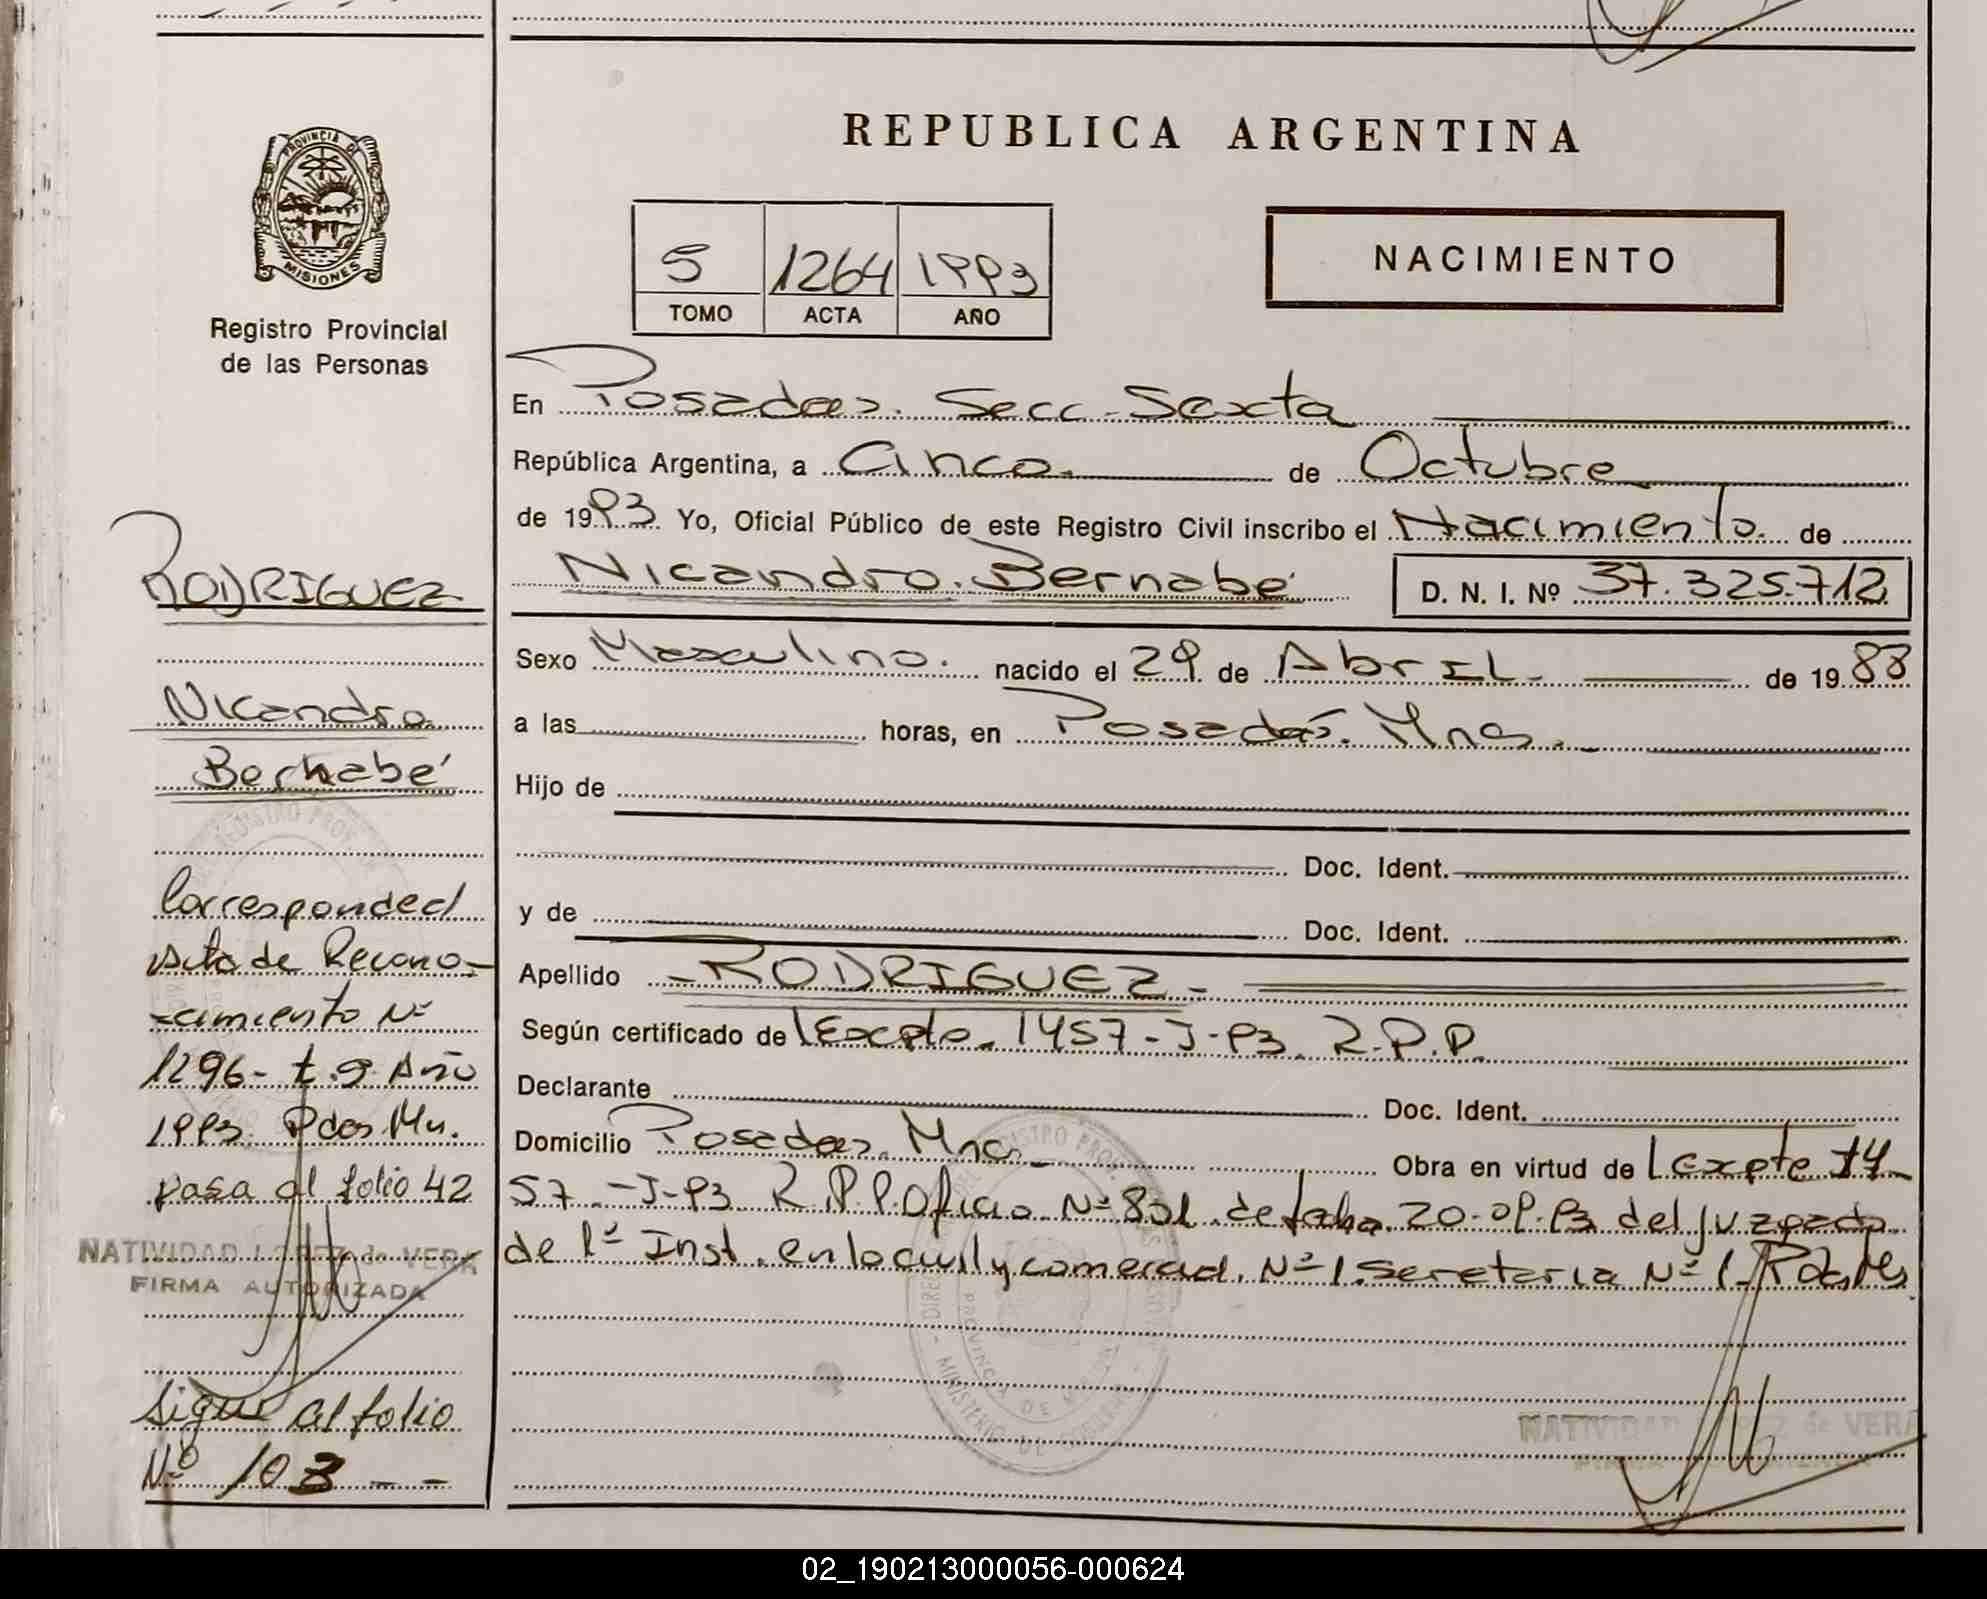 PROVINCIA DE
MISIONES
Registro Provincial
de las Personas
RODRIGUEZ
Nicandro
Bernabé
Corresponde al
Acta de Recono-
cimiento Nº
1296- t.9 Año
1993 Pdas Mn.
pasa al folio 42
NATIVIDAD LOPEZ de VERA
FIRMA AUTORIZADA
Sigue al folio
Nº 103 - -
REPUBLICA ARGENTINA
5 1264 1993
TOMO ACTA AÑO
NACIMIENTO
En Posadas. Secc. Sexta
República Argentina, a Cinco. de Octubre
de 1993 Yo, Oficial Público de este Registro Civil inscribo el Nacimiento. de
Nicandro. Bernabé D. N. I. Nº 37.325.712
Sexo Masculino. nacido el 29 de Abril. de 1988
a las horas, en Posadas. Mns.
Hijo de
Doc. Ident.
y de Doc. Ident.
Apellido - RODRIGUEZ -
Según certificado de Expte. 1457-J-93. R.P.P.
Declarante Doc. Ident.
Domicilio Posadas. Mns. Obra en virtud de Expte 14
57.-J-93 R.P.P. Oficio Nº 831 de fecha 20-09-93 del Juzgado
de 1ª Inst. en lo civil y comercial. Nº 1. Secretaria Nº 1.
NATIVIDAD LOPEZ de VERA
FIRMA AUTORIZADA
02_190213000056-000624